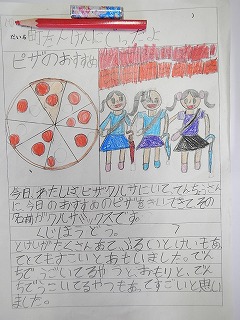 だいな
町たんけんにいったよ
ピザのおすすめ
今日、わたしはピザクルサにいて、てんちょうさん
に今日のおすすめのピザをきいてきてその
名前がクルサミックスです。
くじほうどう。 7
とけいがたくさんあてふるいとけいもあ
てとてもすごいとおもいました。でん
ちでうごいてるやつと、おもりと、でん
ちでうごいてるやつもあてすごいと思い
ました。